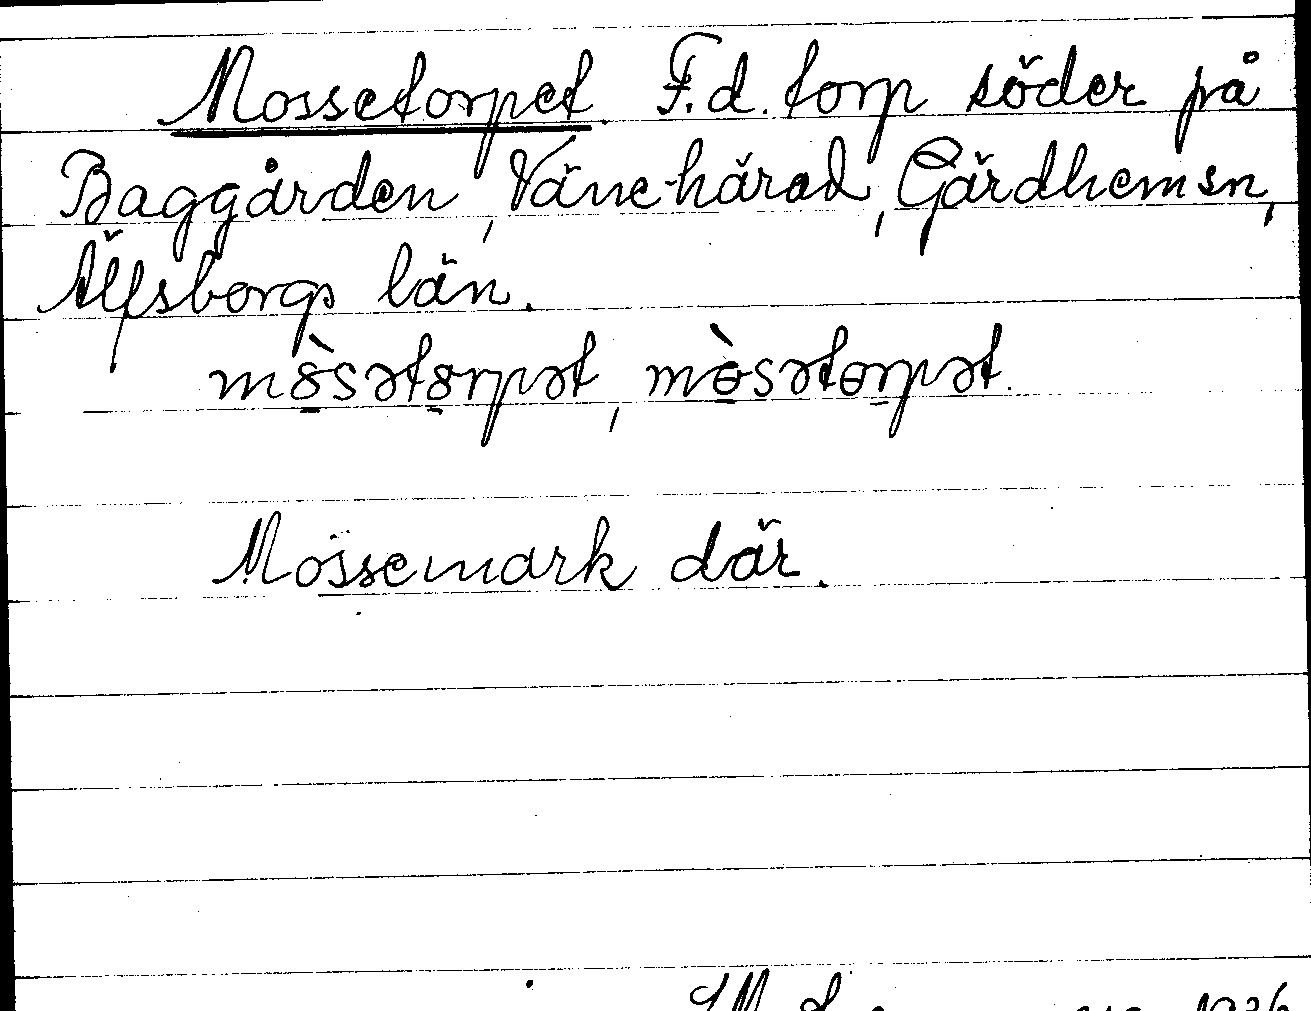 Mossetorpet. F.d. torp söder på
Baggården, Väne-härad, Gärdhemsn,
Älfsborgs län.
mòsətorpət, mɵ̀sətɵrpət.
Mossemark där.
1936